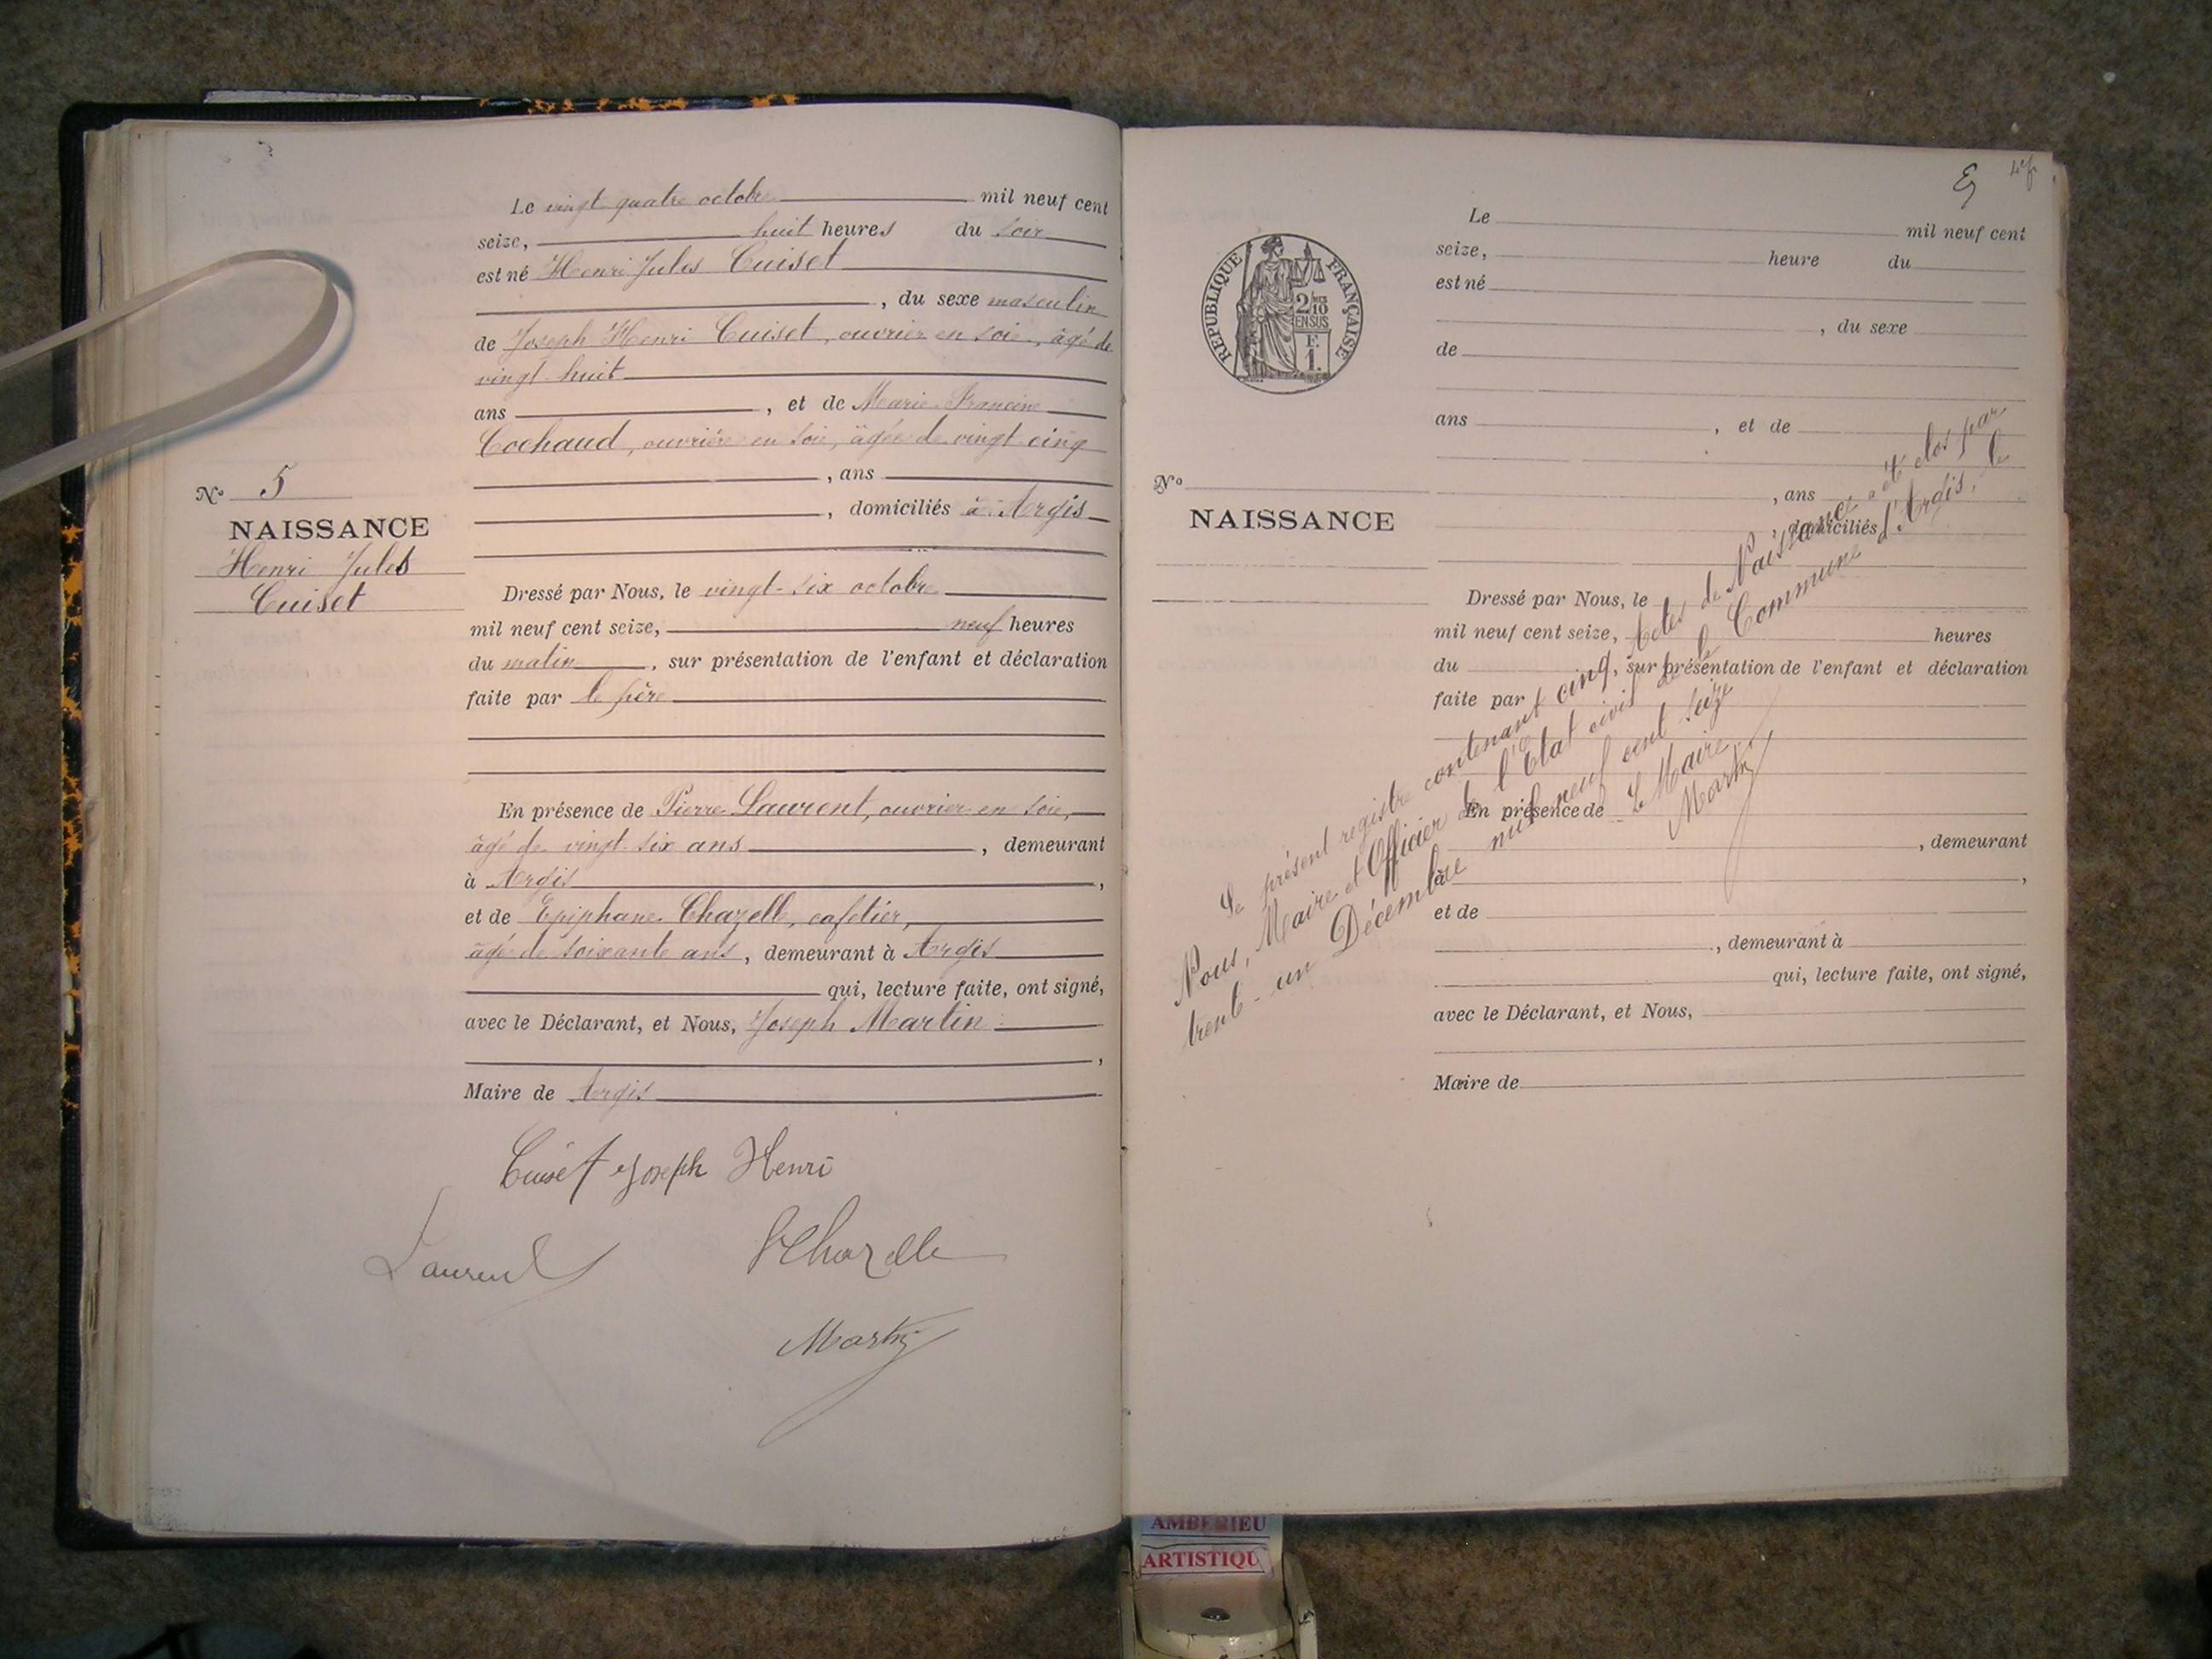 N° 5
NAISSANCE
Henri Jules
Cuiset
Le vingt quatre octobre mil neuf cent
seize, huit heures du soir
est né Henri Jules Cuiset
, du sexe masculin
de Joseph Henri Cuiset, ouvrier en soie, âgé de
vingt-huit
ans , et de Marie Francine
Cochaud, ouvrière en soie, âgée de vingt cinq
, ans
, domiciliés à Argis
Dressé par Nous, le vingt-six octobre
mil neuf cent seize, neuf heures
du matin , sur présentation de l'enfant et déclaration
faite par le père
En présence de Pierre Laurent, ouvrier en soie,
âgé de vingt-six ans , demeurant
à Argis ,
et de Epiphane Chazelle, cafetier,
âgé de soixante ans , demeurant à Argis
qui, lecture faite, ont signé,
avec le Déclarant, et Nous, Joseph Martin
,
Maire de Argis
Cuiset Joseph Henri
Laurent
Chazelle
Martin
RÉPUBLIQUE FRANÇAISE
2/10
EN SUS
F.
1.
N°
NAISSANCE
Le mil neuf cent
seize, heure du
est né
, du sexe
de
ans , et de
, ans
, domiciliés
Dressé par Nous, le
mil neuf cent seize, heures
du , sur présentation de l'enfant et déclaration
faite par
En présence de
, demeurant
à ,
et de
, demeurant à
qui, lecture faite, ont signé,
avec le Déclarant, et Nous,
Maire de
Le présent registre contenant cinq Actes de Naissance a été clos par
Nous, Maire et Officier de l'Etat civil de la Commune d'Argis, le
trente-un Décembre mil neuf cent seize
Le Maire
Martin
AMBERIEU
ARTISTIQU